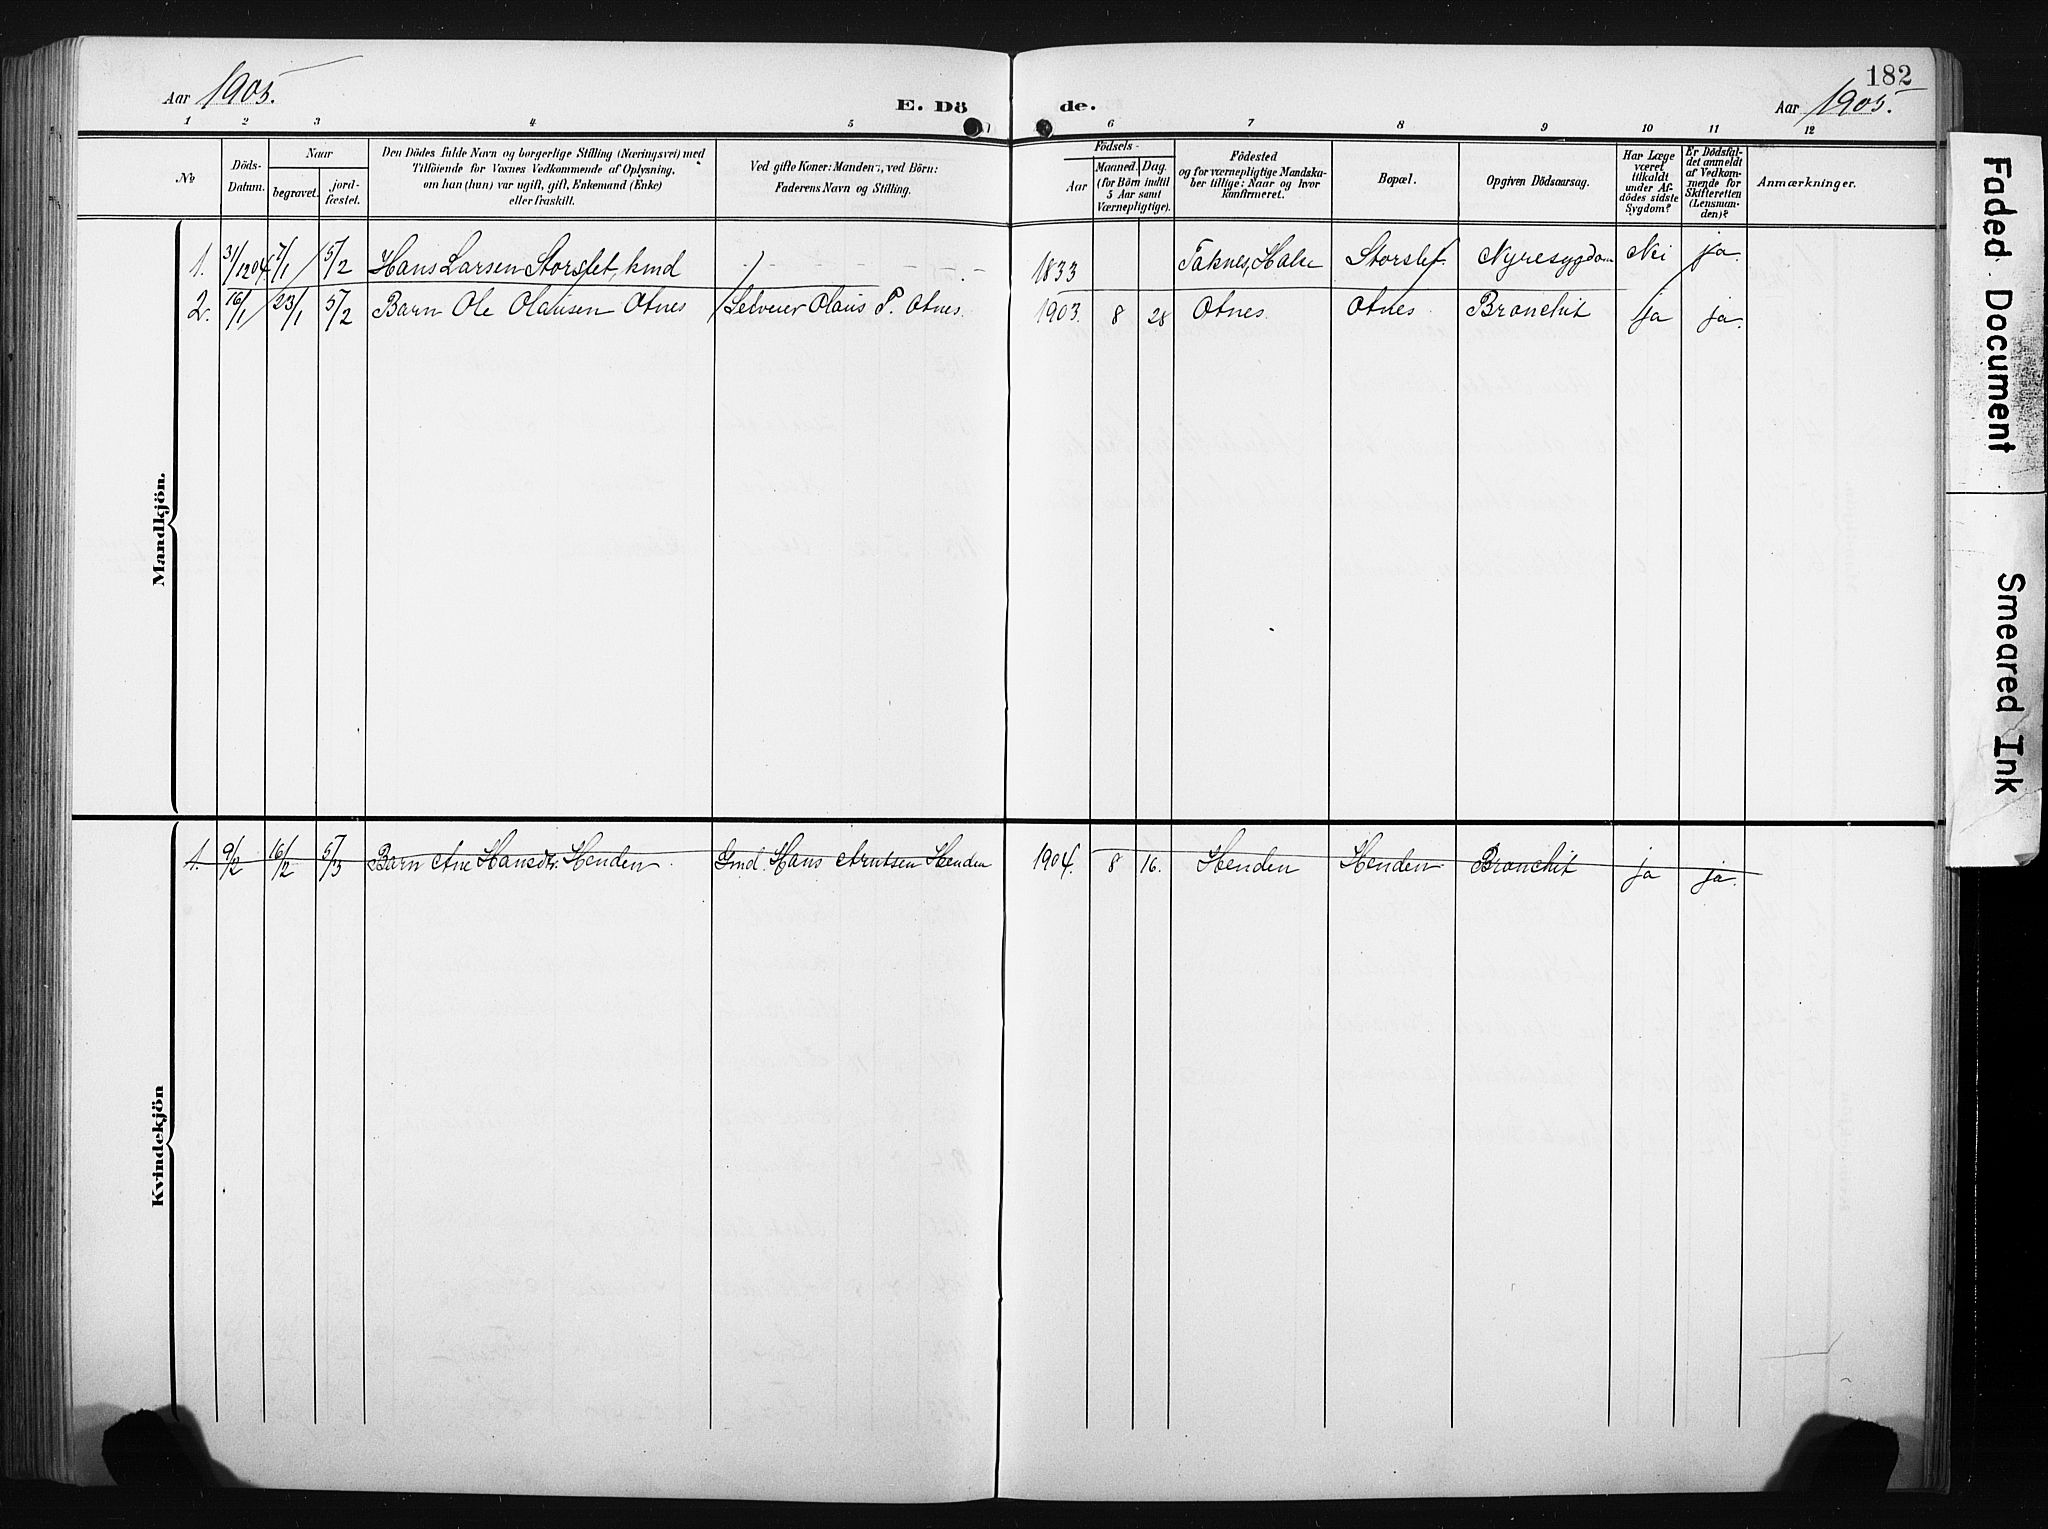 182
Aar 1905.
E. Dö de.
Aar 1905.
1 2 3 4 5 6 7 8 9 10 11 12
No
Döds-Datum.
Naar
begravet.
jord-fæstet.
Den Dödes fulde Navn og borgerlige Stilling (Næringsvei) med
Tilföiende for Voxnes Vedkommende af Oplysning,
om han (hun) var ugift, gift, Enkemand (Enke)
eller fraskilt.
Ved gifte Koner: Manden-, ved Börn:
Faderens Navn og Stilling.
Födsels-
Aar
Maaned. Dag.
(for Börn indtil
5 Aar samt
Værnepligtige).
Födested
og for værnepligtige Mandska-
ber tillige: Naar og hvor
konfirmeret.
Bopæl.
Opgiven Dödsaarsag.
Har Læge
været
tilkaldt
under Af-
dödes sidste
Sygdom?
Er Dödsfal-
det anmeldt
af Vedkom-
mende for
Skifteretten
(Lensman-
den)?
Anmærkninger.
Mandkjön.
1. 31/12 04 7/1 5/2 Hans Larsen Storslet, kmd 1833 Taknes, Halse Storslet Nyresygdom Nei ja
2. 16/1 23/1 5/2 Barn Ole Olausen Otnes Selveier Olaus P. Otnes. 1903. 8 28 Otnes. Otnes Bronchit ja ja.
Kvindekjön
1. 9/2 16/2 5/3 Barn Ane Hansdt. Henden Gmd. Hans Arntsen Henden 1904. 8 16. Henden Henden Bronchit ja ja.
Faded Document
Smeared Ink